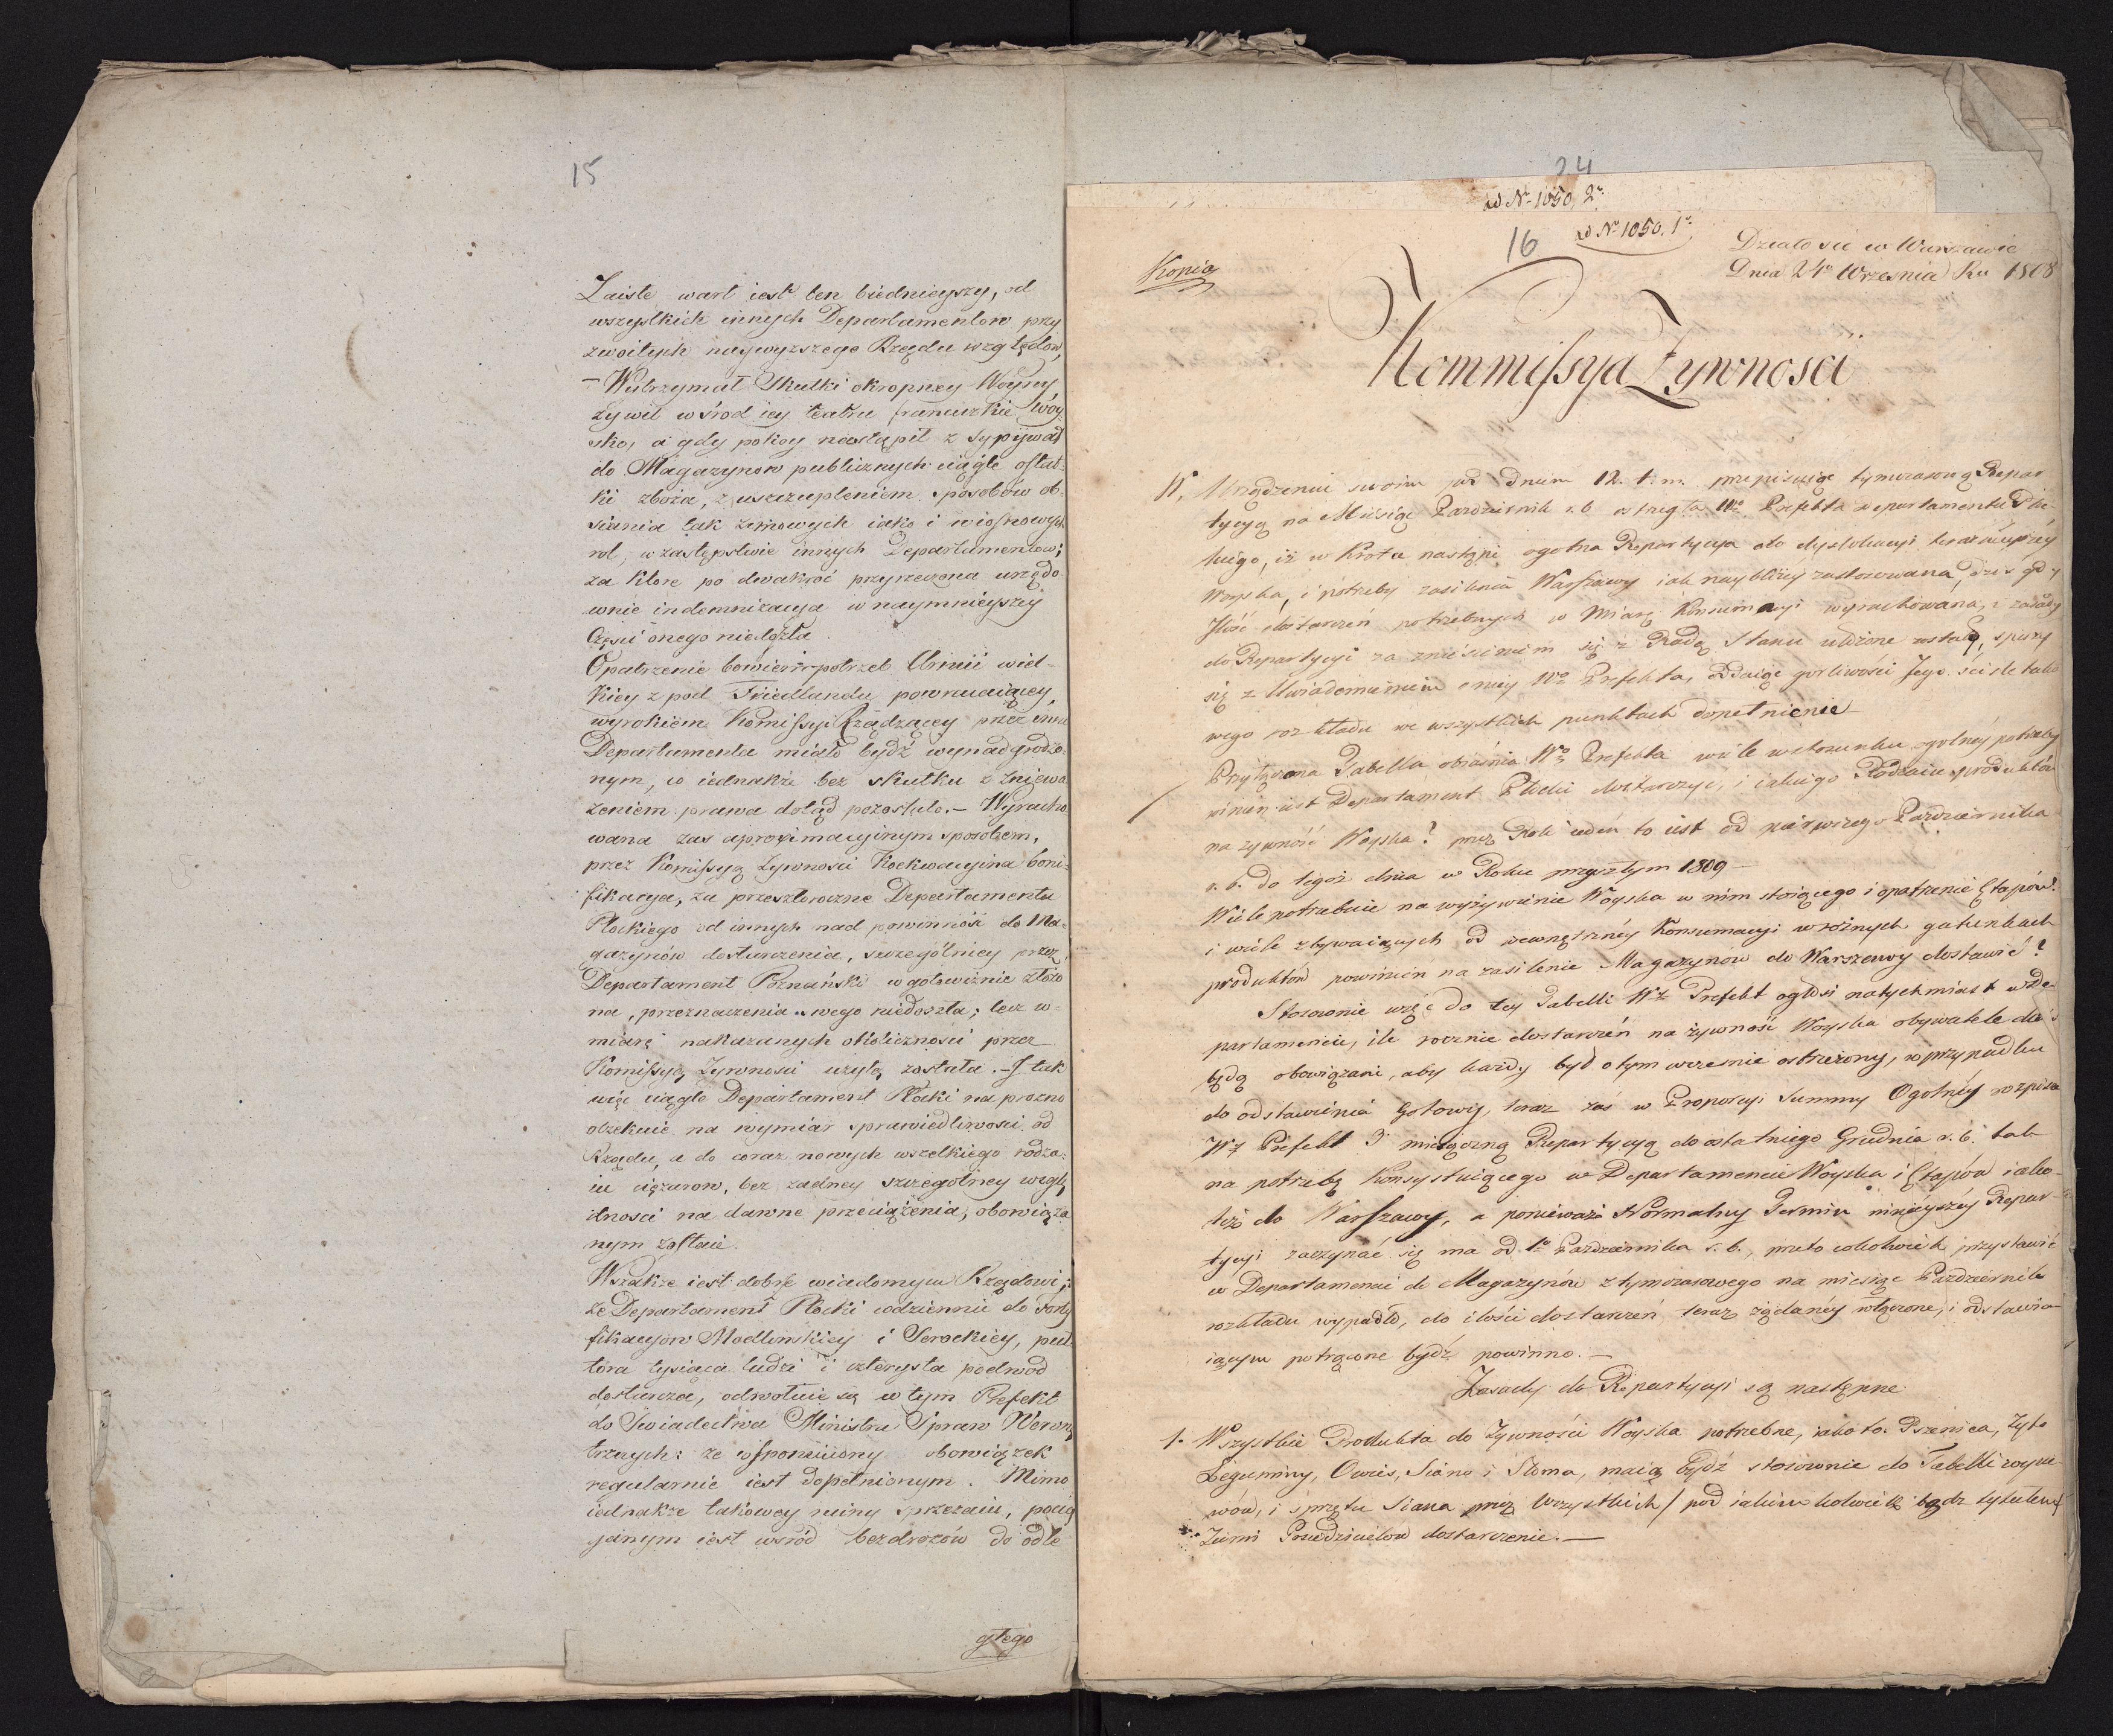 15
Zaiste wart iest ten biednieyszy, od
wszystkich innych Departamentow przy
zwoitych naywyzszego Rządu względow,
– Wytrzymał Skutki okropney Woyny
żywił wśrod iey teatru francuzkie Woy
sko, a gdy pokoy nastąpił z sypywał
do Magazynow publicznych ciągle ostat-
ki zboża, z uszczupleniem sposobów ob-
siania tak zimowych iako i wiosnowych
rol, w zastępstwie innych Departamentow;
za ktore po dwakroć przyrzeczona urzędo
wnie indemnizacya w naymnieyszey
Części onego niedoszła
Opatrzenie bowiem potrzeb Armii wiel-
kiey z pod Friedlandu powracaiącey,
wyrokiem Komissyi Rządzącey przez inne
Departamenta miało bydź wynadgrodzo-
nym, co iednakże bez skutku z zniewa
żeniem prawa dotąd pozostało. – Wyracho
wana zas aproximacyinym sposobem,
przez Komissyą Zywnosci Koekwacyina boni-
fikacya, za przeszłoroczne Departamentu
Płockiego od innych nad powinność do Ma-
gazynów dostarczenia, szczególniey przez
Departament Poznański w gotowiznie złożo
na, przeznaczenia swego niedoszła; lecz w
miarę nakazanych okoliczności przez
Komissyą Zywnosci użytą została. – I tak
więc ciągle Departament Płocki na prozno
oczekuie na wymiar sprawiedliwosci od
Rządu, a do coraz nowych wszelkiego rodza-
iu ciężarow, bez żadney szczegolney wzglę
dnosci na dawne przeciążenia, obowiąza
nym zostaie.
Wszakże iest dobrze wiadomym Rządowi,
że Departament Płocki codziennie do Forty
fikacyow Modlinskiey i Serockiey, pół
tora tysiąca ludzi i czterysta podwod
dostarcza, odwołuie się w tym Prefekt
do Swiadectwa Ministra Spraw Wewnę
trznych: że wspomniony obowiązek
regularnie iest dopełnionym. Mimo
iednakże takowey ruiny sprzężaiu, pocią
ganym iest wśród bezdrozów do odle
głego
24
ad Nr. 1050, 2o.
16
ad No 1050. 1o.
Kopia
Działo się w Warszawie
Dnia 24o Września Ru 1808
Kommissya Żywnosci
W Urządzeniu swoim pod dniem 12. t. m. przepisuiąc tymczasową Repar
tycyą na Miesiąc Pazdziernik r. b. ostrzegła Wo Prefekta Departamentu Płoc
kiego, iż w krotce nastąpi ogolna Repartycya do dyslokacyi terazniejszey
Woyska, i potrzeby zasilenia Warszawy iak naybliżey zastosowana, dzis gdy
Ilość dostarczeń potrzebnych w miarę Konsumacyi wyrachowana, i zasady
do Repartycyi za zniesieniem się z Radą Stanu ułożone zostały, spieszy
się z Uwiadomieniem o niey Wo Prefekta, oddaiąc gorliwości Jego ściśle tako
wego rozkładu we wszystkich punktach dopełnienie –
Przyłączona Tabella obiaśnia Wo Prefekta wiele w stosunku ogolney potrzeby
winien iest Departament Płocki dostarczyć, i iakiego Rodzaiu produktów
na żywność Woyska? przez Rok ieden to iest od pierwszego Pazdziernika
r. b. do tegoż dnia w Roku przyszłym 1809 –
Wiele potrzebuie na wyżywienie Woyska w nim stoiącego i opatrzenie Etapów?
i wiele zbywaiących od wewnętrzney Konsumacyi w różnych gatunkach
produktow powinien na zasilenie Magazynów do Warszawy dostawić?
Stosownie więc do tey Tabelli Wy Prefekt ogłosi natychmiast w De-
partamencie, ile rocznie dostarczeń na żywność Woyska obywatele dać
będą obowiązani, aby każdy był o tym wcześnie ostrzeżony, w przypadku
do odstawienia gotowy, teraz zaś w Proporcyi Summy Ogolney rozpisze
Wy Prefekt 3 miesięczną Repartycyą do ostatniego Grudnia r. b. tak
na potrzebę Konsystuiącego w Departamencie Woyska i Etapów iako-
też do Warszawy, a ponieważ Normalny Termin ninieyszéy Repar-
tycyi zaczynać się ma od 1o Pazdziernika r. b., przeto cokolwiek przystawić
w Departamencie do Magazynów z tymczasowego na miesiąc Pazdziernik
rozkładu wypadło, do ilości dostarczeń teraz żądanéy włączone, i odstawia
iącym potrącone bydź powinno. –
Zasady do Repartycyi są następne
1. Wszystkie Produkta do Żywności Woyska potrzebne, iako to. Pszenica, Żyto
Leguminy, Owies, Siano i Słoma, maią bydź stosownie do Tabelli wysie-
wów, i sprzętu Siana przez wszystkich / pod iakim kolwiek bądz tytułem /
Ziemi Posiedzicielow dostarczenie. –